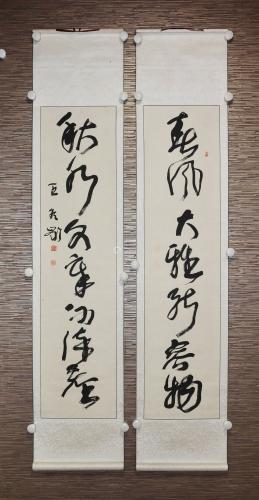 春风大雅能容物
秋水文章不染尘